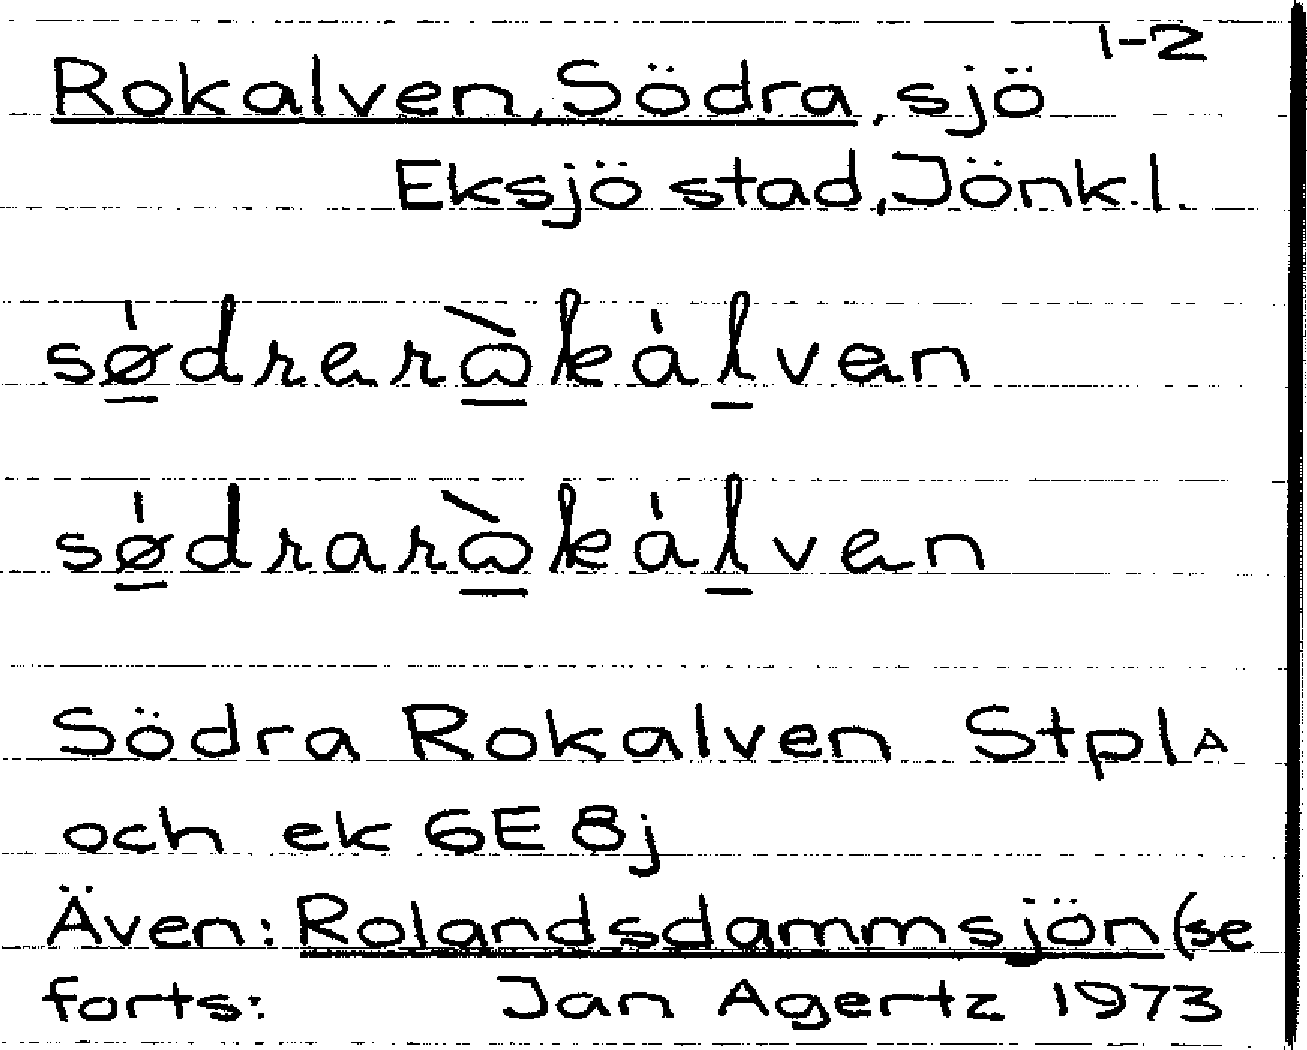 1-2
Rokalven, Södra, sjö
Eksjö stad, Jönk.l.
Södra Rokalven Stpl A
och ek 6E 8j
Även: Rolandsdammsjön (se
forts: Jan Agertz 1973